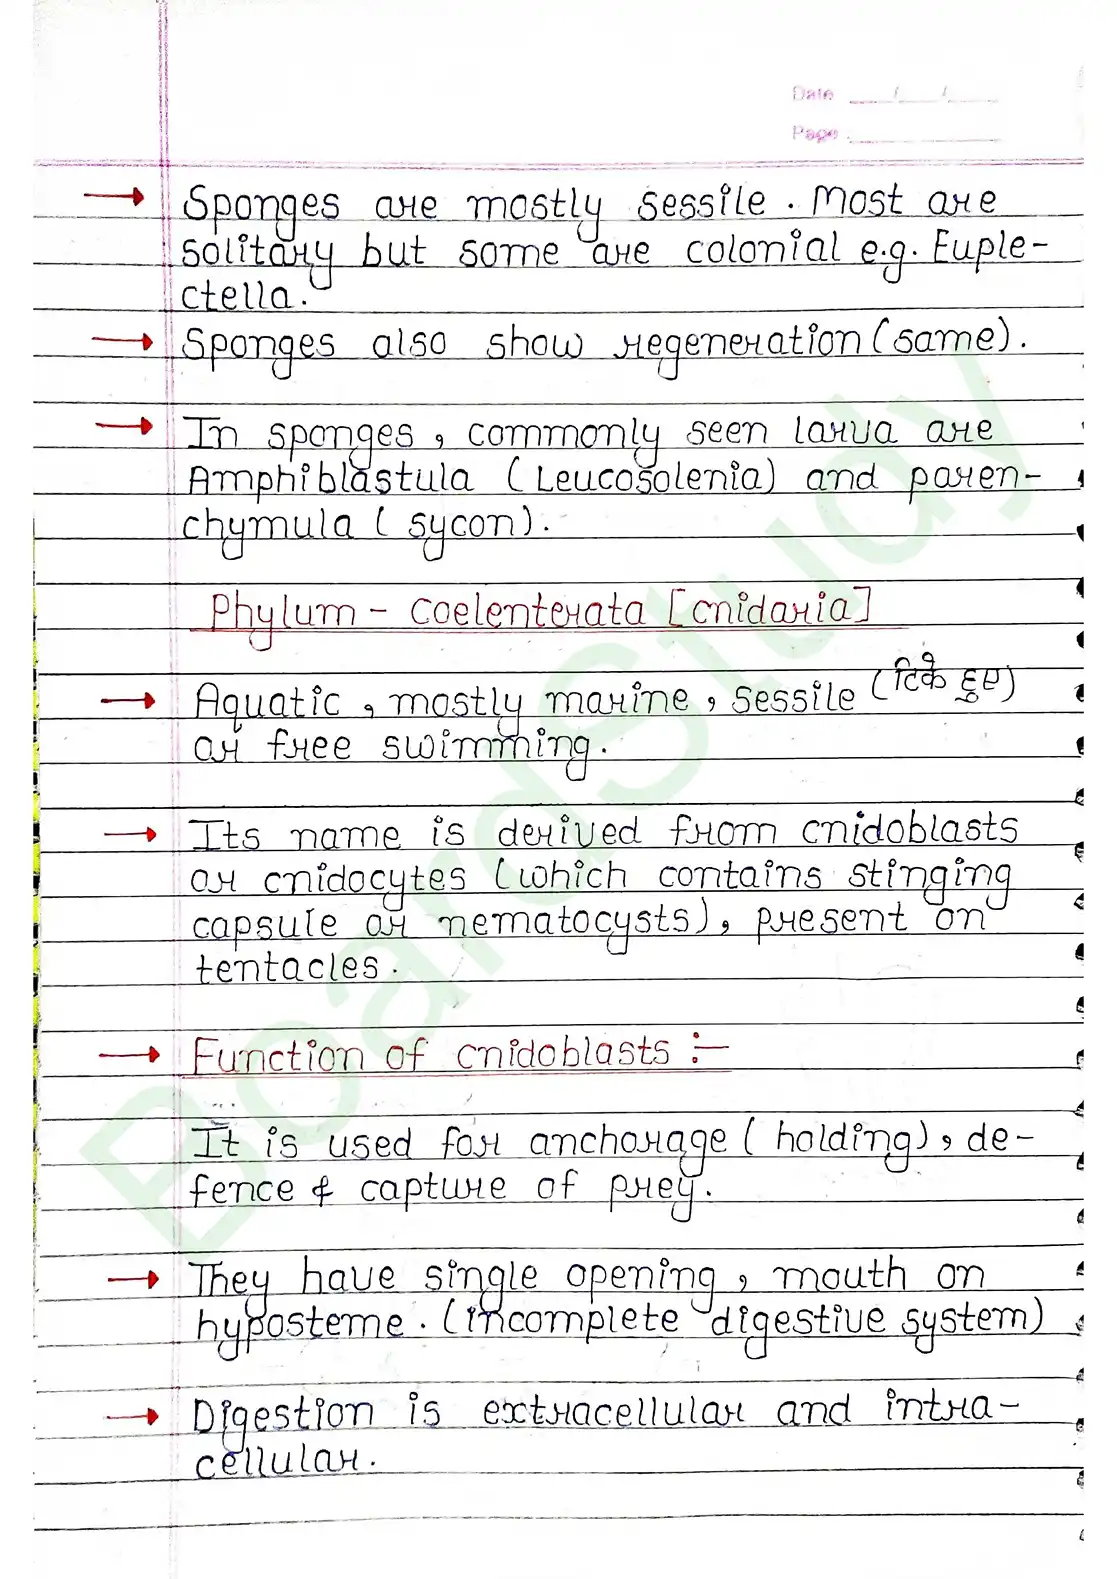 Date ___/___/___
Page
→ Sponges are mostly sessile. Most are
solitary but some are colonial e.g. Euple-
ctella.
→ Sponges also show regeneration (same).
→ In sponges, commonly seen larva are
Amphiblastula (Leucosolenia) and paren-
chymula (sycon).
Phylum - Coelenterata [cnidaria]
→ Aquatic, mostly marine, sessile (टिके हुए)
or free swimming.
→ Its name is derived from cnidoblasts
or cnidocytes (which contains stinging
capsule or nematocysts), present on
tentacles.
→ Function of cnidoblasts :-
It is used for anchorage (holding), de-
fence & capture of prey.
→ They have single opening, mouth on
hyposteme. (incomplete digestive system)
→ Digestion is extracellular and intra-
cellular.
BoardStudy